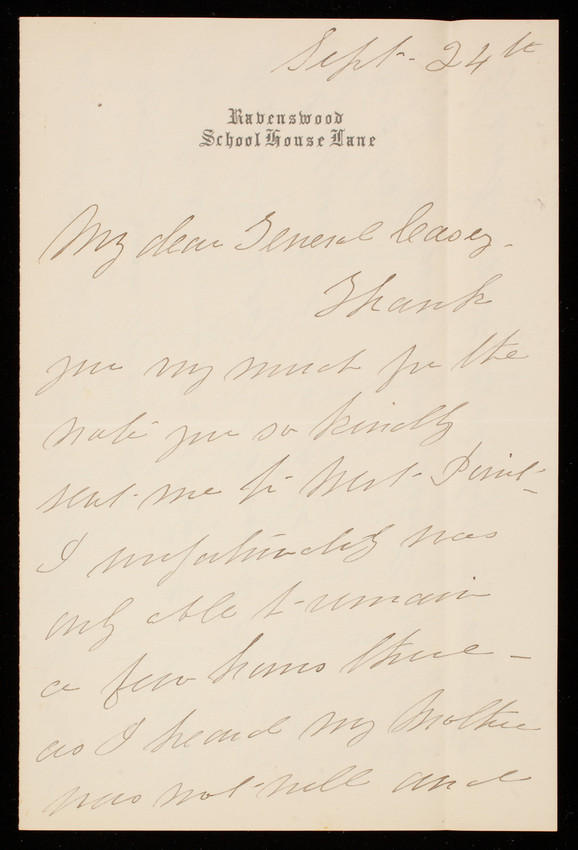 Sept. 24th
Ravenswood
School House Lane
My dear General Casey.
Thank
you very much for the
note you so kindly
sent me to West Point -
I unfortunately was
only able to remain
a few hours there -
as I heard my Mother
was not well and